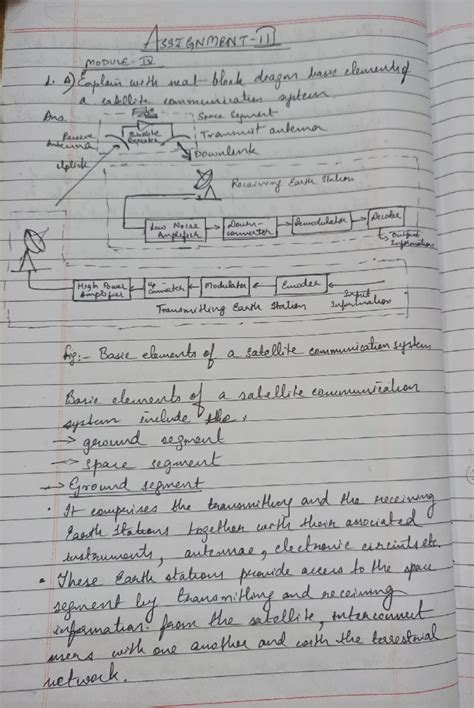 ASSIGNMENT-III
MODULE-IV
1. A) Explain with neat block diagram basic elements of
a satellite communication system.
Ans.
Space Segment
Receive Antenna
Satellite Repeater
Transmit antenna
Uplink
Downlink
Receiving Earth Station
Low Noise Amplifier
Down-converter
Demodulator
Decoder
Output Information
High Power Amplifier
Up Converter
Modulator
Encoder
Input Information
Transmitting Earth Station
fig:- Basic elements of a satellite communication system
Basic elements of a satellite communication
system include the,
→ geround segment
→ space segment
→ Ground segment
• It comprises the transmitting and the receiving
Earth stations together with their associated
instruments, antennae, electronic circuits etc.
• These Earth stations provide access to the space
segment by transmitting and receiving
information from the satellite, interconnect
users with one another and with the terrestrial
network.